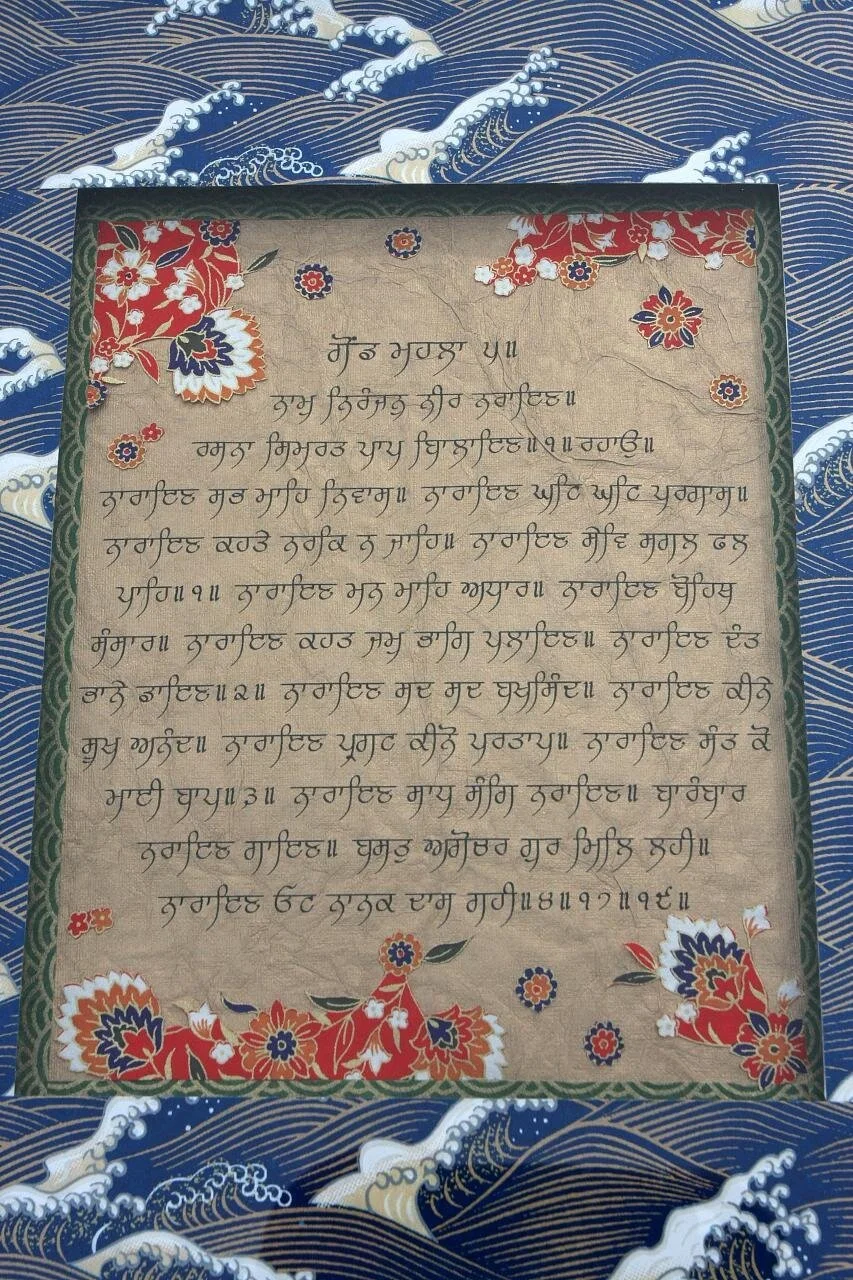 ਗੋਂਡ ਮਹਲਾ ੫॥
ਨਾਮੁ ਨਿਰੰਜਨੁ ਨੀਰ ਨਰਾਇਣ॥
ਰਸਨਾ ਸਿਮਰਤ ਪਾਪ ਬਿਲਾਇਣ॥੧॥ਰਹਾਉ॥
ਨਾਰਾਇਣ ਸਭ ਮਾਹਿ ਨਿਵਾਸ॥ ਨਾਰਾਇਣ ਘਟਿ ਘਟਿ ਪਰਗਾਸ॥
ਨਾਰਾਇਣ ਕਹਤੇ ਨਰਕਿ ਨ ਜਾਹਿ॥ ਨਾਰਾਇਣ ਸੇਵਿ ਸਗਲ ਫਲ
ਪਾਹਿ॥੧॥ ਨਾਰਾਇਣ ਮਨ ਮਾਹਿ ਅਧਾਰ॥ ਨਾਰਾਇਣ ਬੋਹਿਥ
ਸੰਸਾਰ॥ ਨਾਰਾਇਣ ਕਹਤ ਜਮੁ ਭਾਗਿ ਪਲਾਇਣ॥ ਨਾਰਾਇਣ ਦੰਤ
ਭਾਨੇ ਡਾਇਣ॥੨॥ ਨਾਰਾਇਣ ਸਦ ਸਦ ਬਖਸਿੰਦ॥ ਨਾਰਾਇਣ ਕੀਨੇ
ਸੂਖ ਅਨੰਦ॥ ਨਾਰਾਇਣ ਪ੍ਰਗਟ ਕੀਨੋ ਪਰਤਾਪ॥ ਨਾਰਾਇਣ ਸੰਤ ਕੋ
ਮਾਈ ਬਾਪ॥੩॥ ਨਾਰਾਇਣ ਸਾਧ ਸੰਗਿ ਨਰਾਇਣ॥ ਬਾਰੰਬਾਰ
ਨਰਾਇਣ ਗਾਇਣ॥ ਬਸਤੁ ਅਗੋਚਰ ਗੁਰ ਮਿਲਿ ਲਹੀ॥
ਨਾਰਾਇਣ ਓਟ ਨਾਨਕ ਦਾਸ ਗਹੀ॥੪॥੧੭॥੧੯॥